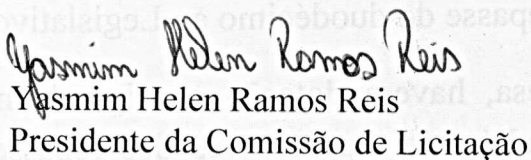 Yasmim Helen Ramos Reis
Yasmim Helen Ramos Reis
Presidente da Comissão de Licitação